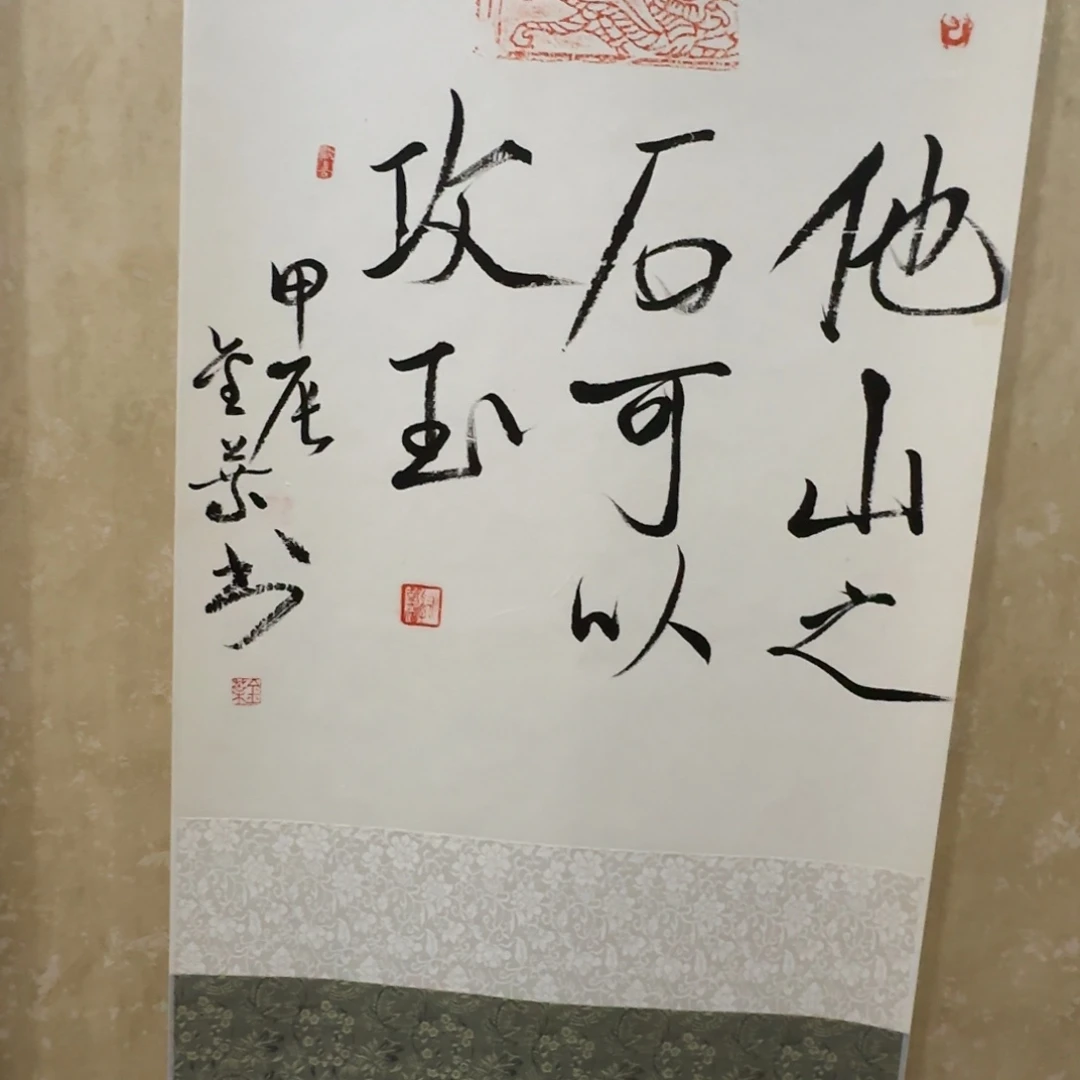 他山之
石可以
攻玉
甲辰
金叶书
金葉